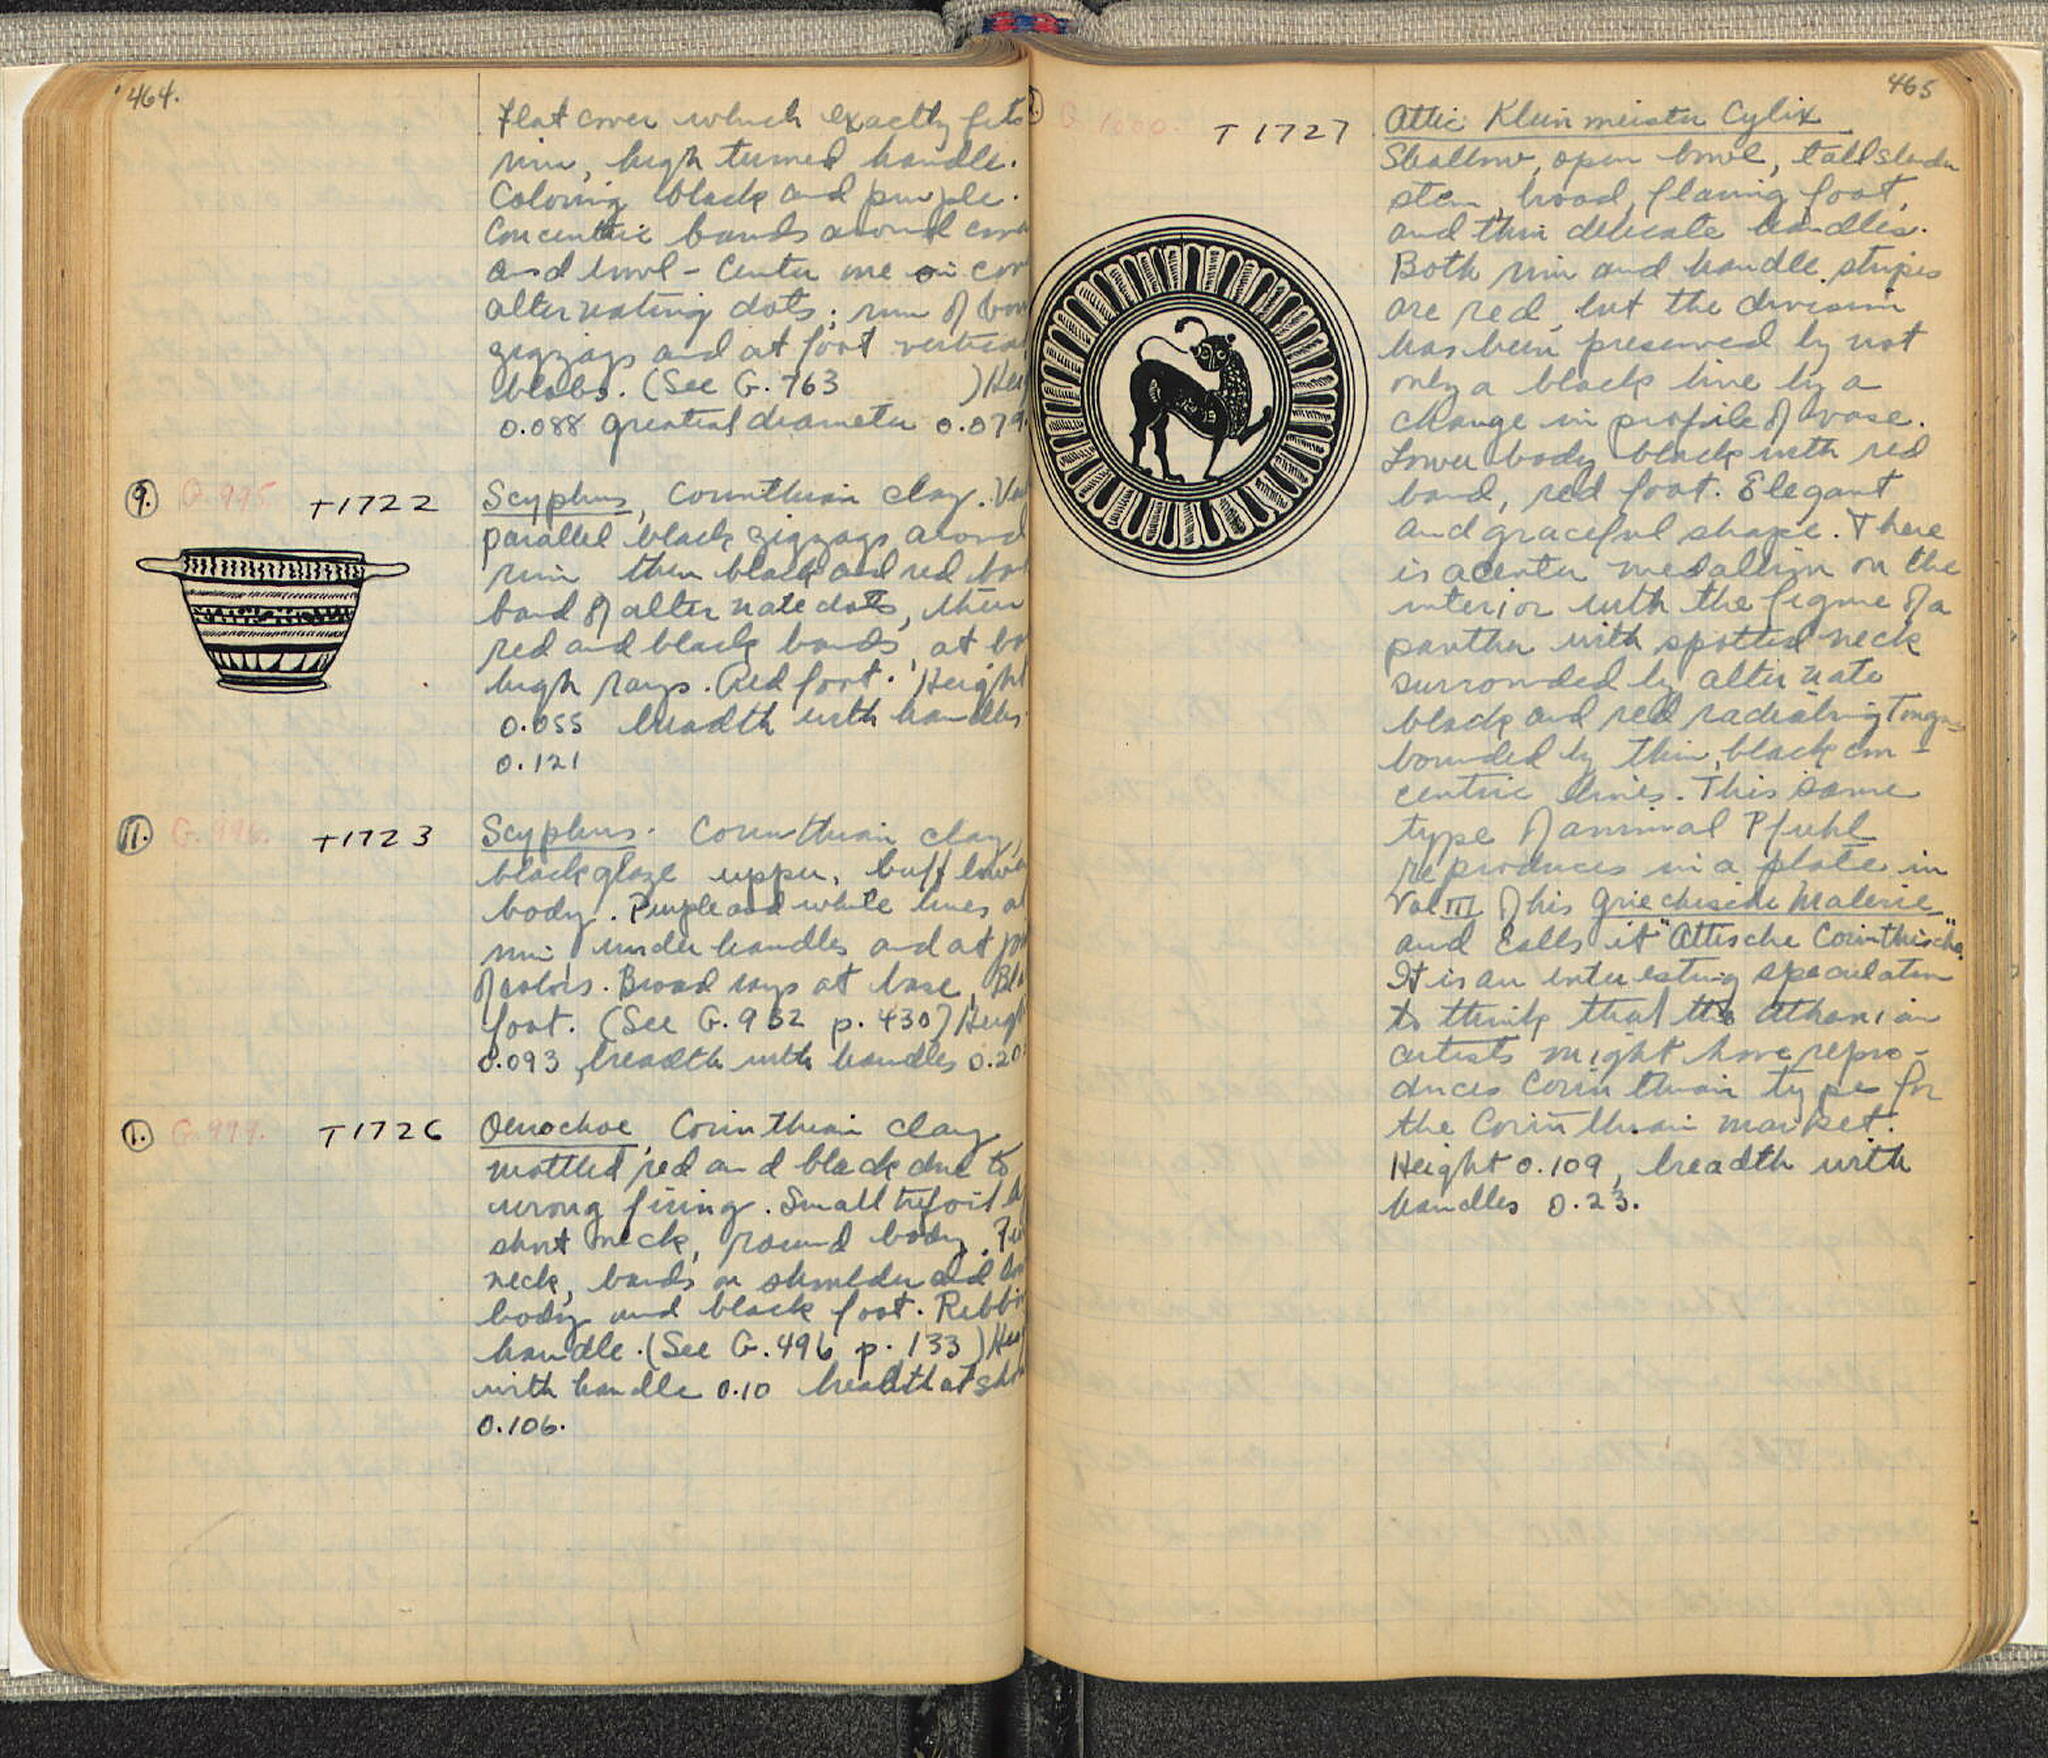 464.
Flat cover which exactly fits
rim, high turned handle.
Coloring black and purple.
Concentric bands around
and bowl - Center one on
alternating dots; rim of
zigzags and at foot vertical
blobs. (See G. 763 )
0.088 greatest diameter 0.079
9. G. 995. T1722 Scyphus, Corinthian clay.
parallel black zigzags around
rim then black and red
band of alternate dots, then
red and black bands, at
high rays. Red foot. Height
0.055 breadth with handles
0.121
11. G. 996. T1723 Scyphus. Corinthian clay,
black glaze upper, buff lower
body. Purple and white lines at
rim, under handles and at
of colors. Broad rays at base.
foot. (See G. 932 p. 430)
0.093, breadth with handles
1. G. 999. T1726 Oenochoe, Corinthian clay
mottled red and black due to
wrong firing. Small trefoil
short neck, round body.
neck, bands on shoulder and
body and black foot.
handle. (See G. 496 p. 133)
with handle 0.10 breadth at
0.106.
465
G 1000. T1727 Attic Kleinmeister Cylix
Shallow, open bowl, tall slender
stem, broad, flaring foot,
and thin delicate handles.
Both rim and handle stripes
are red, but the division
has been preserved by not
only a black line by a
change in profile of vase.
Lower body black with red
band, red foot. Elegant
and graceful shape. There
is a center medallion on the
interior with the figure of a
panther with spotted neck
surrounded by alternate
black and red radiating Tongues
bounded by thin, black con-
centric lines. This same
type of animal Pfuhl
reproduces in a plate in
Vol III of his Griechische Malerie
and calls it "Attische Corinthische"
It is an interesting speculation
to think that the Athenian
artists might have repro-
duces Corinthian types for
the Corinthian market.
Height 0.109, breadth with
handles 0.23.